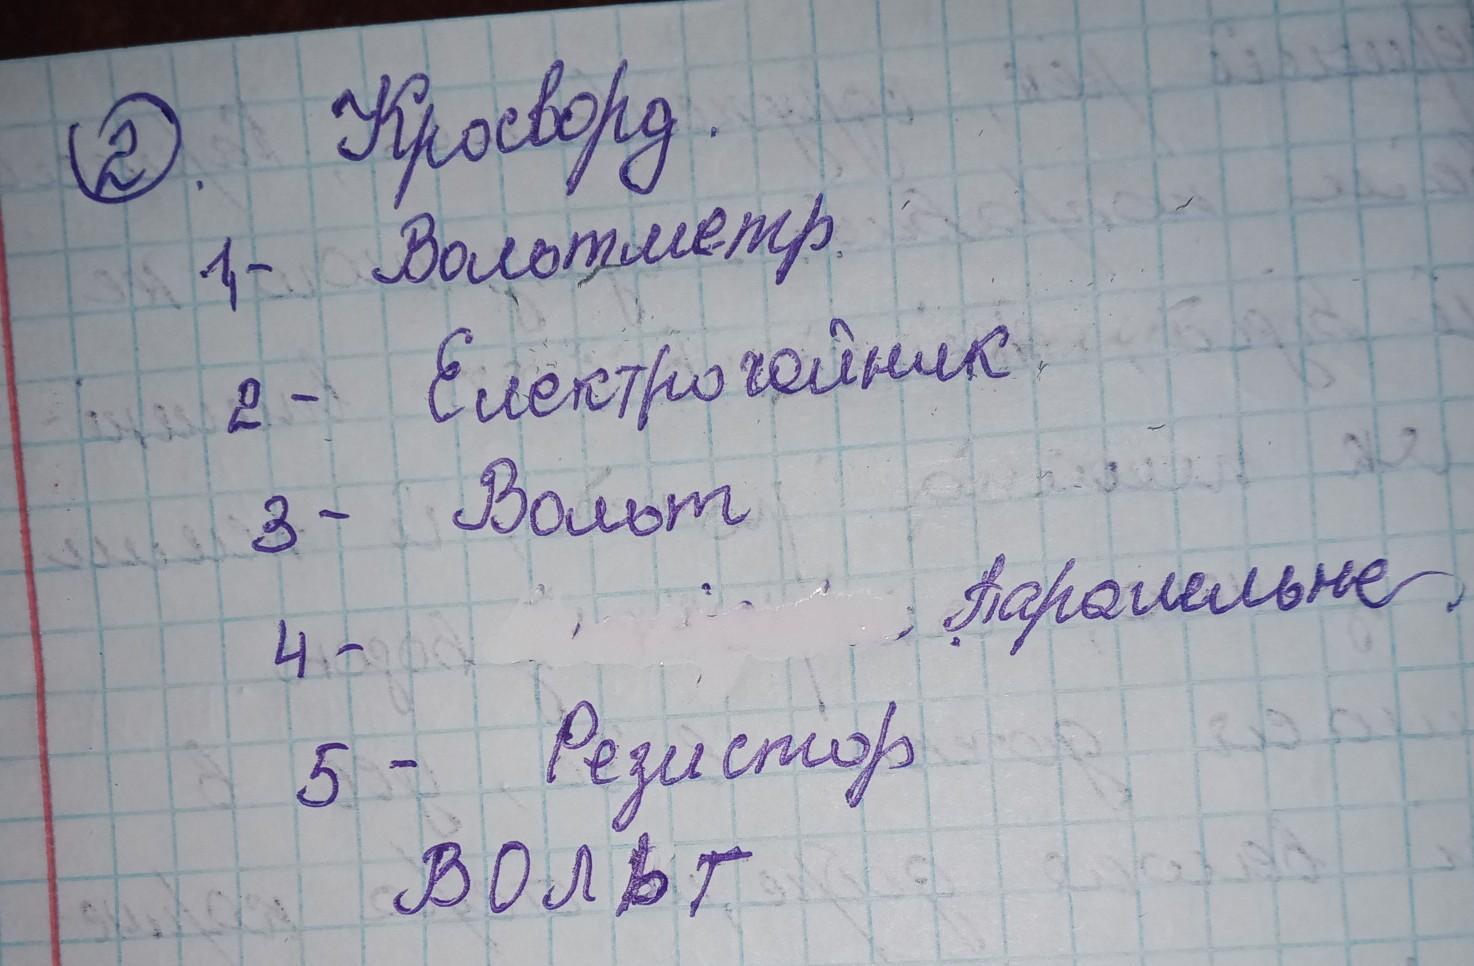 2. Кросворд.
1- Вольтметр.
2- Електрочайник.
3- Вольт
4- Паралельне.
5- Резистор
ВОЛЬТ